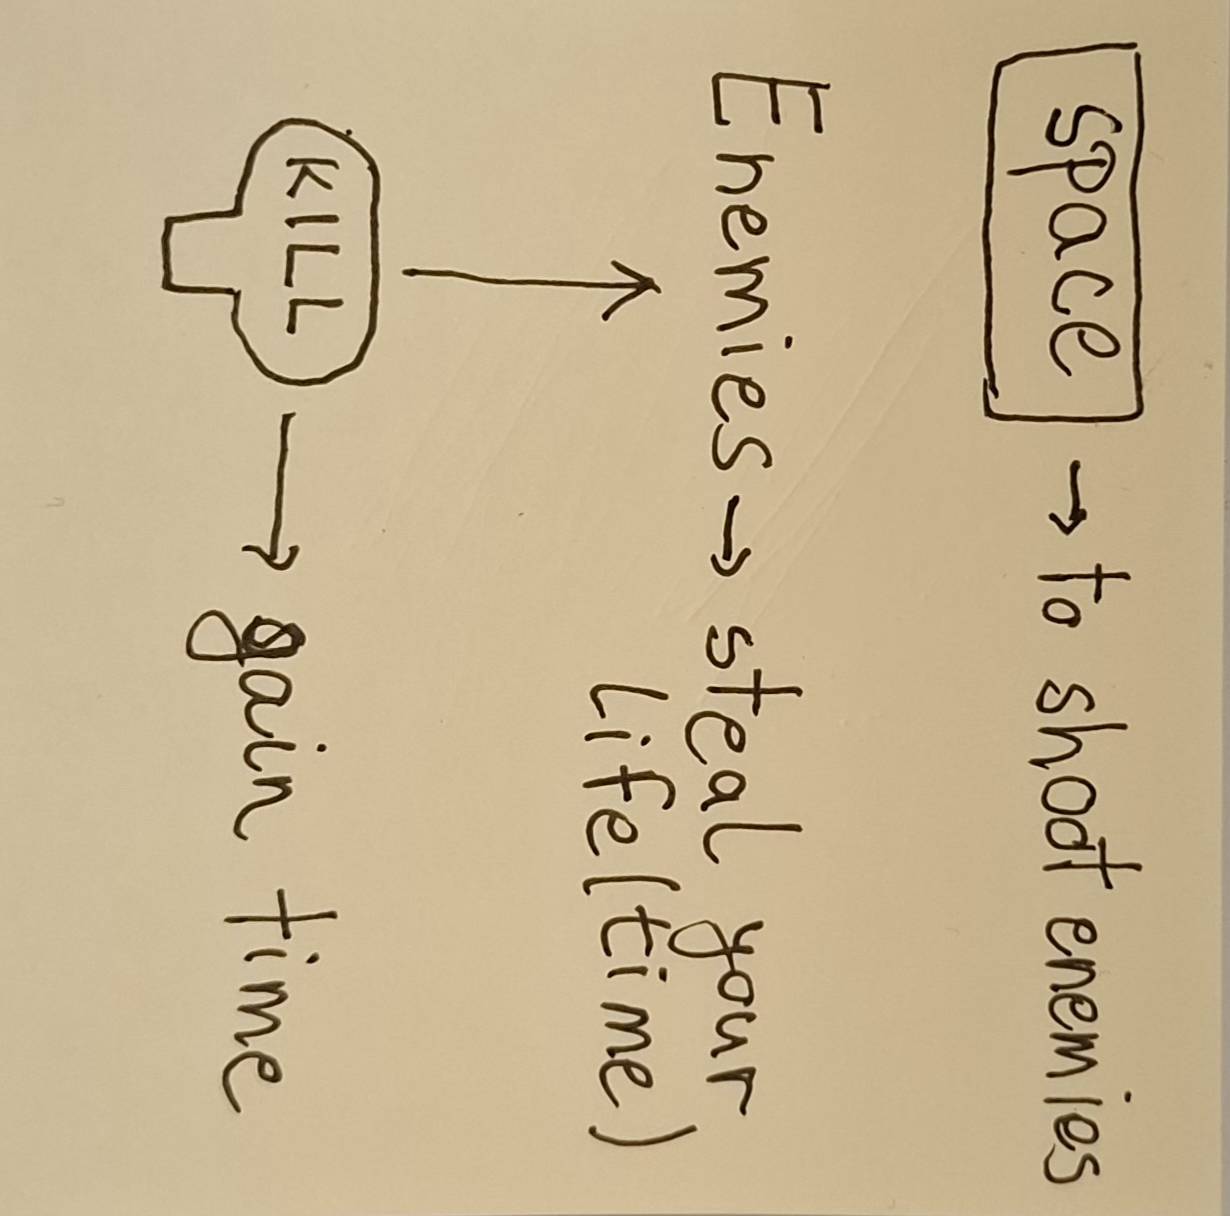 space → to shoot enemies
Enemies → steal your
life (time)
KILL → gain time